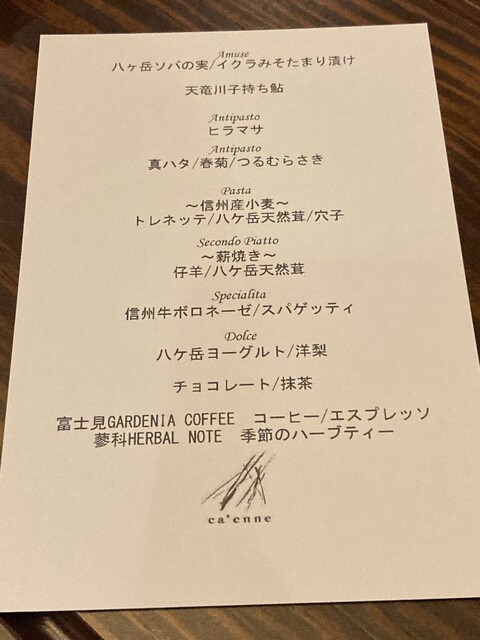 Amuse
八ヶ岳ソバの実/イクラみそたまり漬け
天竜川子持ち鮎
Antipasto
ヒラマサ
Antipasto
真ハタ/春菊/つるむらさき
Pasta
～信州産小麦～
トレネッテ/八ケ岳天然茸/穴子
Secondo Piatto
～薪焼き～
仔羊/八ケ岳天然茸
Specialita
信州牛ボロネーゼ/スパゲッティ
Dolce
八ケ岳ヨーグルト/洋梨
チョコレート/抹茶
富士見GARDENIA COFFEE　コーヒー/エスプレッソ
蓼科HERBAL NOTE　季節のハーブティー
ca'enne